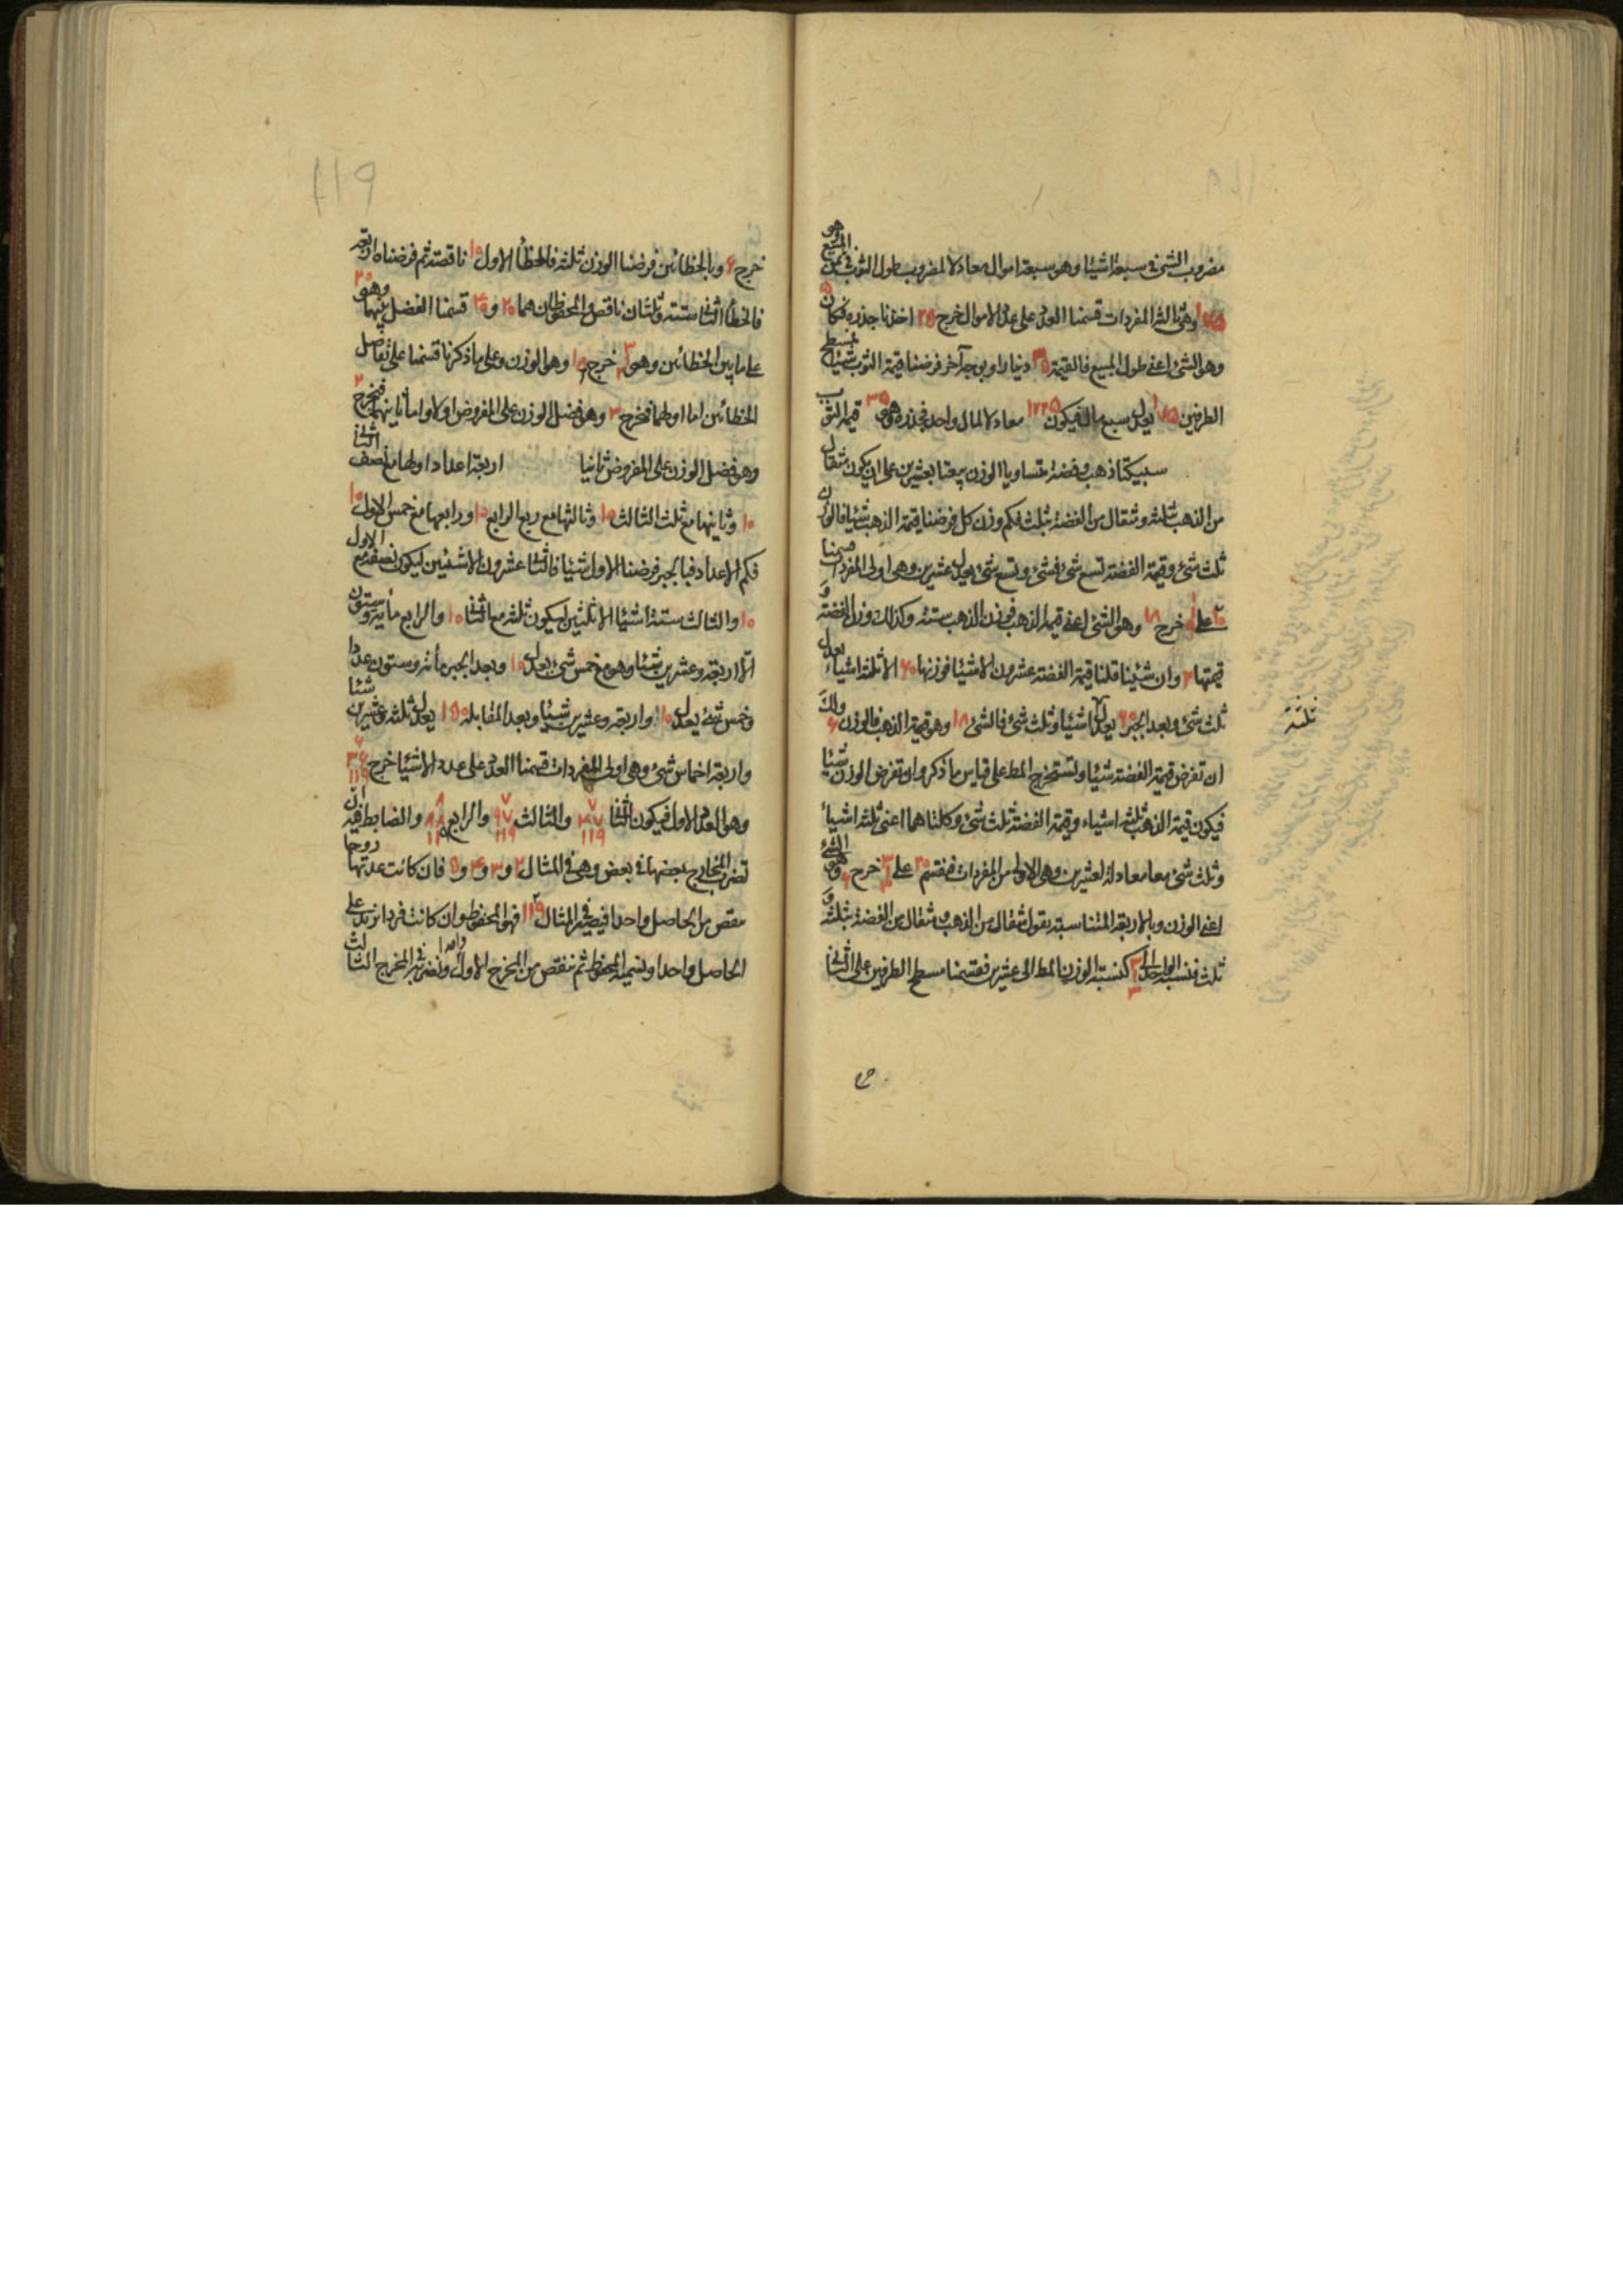 مضروب الشئ فى سبعة اشيا وهو سبعة اموال معادلا لمضروب طول الثوب فى ثمن المبيع وهو
١٧٥ وهى ثالثة المفردات قسمنا العدد على عدد الاموال خرج ٢٥ اخذنا جذره فكان ٥
وهو الشئ اعنى طول المبيع فالقيمة ٣٥ دينارا وبوجه آخر فرضنا قيمة الثوب شيئا فمسطح
الطرفين ١٧٥ يعدل سبع مال فيكون ١٢٢٥ معادلا لمال واحد فجذره وهو ٣٥ قيمة الثوب
سبيكتا ذهب وفضة متساويا الوزن بيعتا بعشرين على ان يكون مثقال
من الذهب بثلثة ومثقال من الفضة بثلث فكم وزن كل فرضنا قيمة الذهب شيئا فالوزن
ثلث شئ وقيمة الفضة تسع شئ فشئ وتسع شئ يعدل عشرين وهى اولى المفردات قسمنا
٢٠ على خرج ١٨ وهو الشئ اعنى قيمة الذهب فوزن الذهب ستة وكذلك وزن الفضة و
قيمتها ٢ وان شئنا قلنا قيمة الفضة عشرون الا شيئا فوزنها ٦٠ الا ثلثة اشياء يعدل
ثلث شئ وبعد الجبر ٦٠ يعدل اشيا وثلث شئ فالشئ ١٨ وهو قيمة الذهب فالوزن ٦ ولك
ان تفرض قيمة الفضة شيئا وتستخرج المط على قياس ما ذكر وان تفرض الوزن شيئا
فيكون قيمة الذهب ثلثة اشياء وقيمة الفضة ثلث شئ وكلتاهما اعنى ثلثة اشياء
وثلث شئ معا معادلة لعشرين وهى الاولى من المفردات فنقسم ٢٠ على خرج ٦ وهو الشئ
اعنى الوزن وبالاربعة المتناسبة بقول مثقال من الذهب ومثقال من الفضة بثلثة و
ثلث فنسبة الواحد الى كنسبة الوزن المط الى عشرين فقسمنا مسطح الطرفين على الثانى
ثلثة
١١٩
خرج ٦ وبالخطائين فرضنا الوزن ثلثة فالخطأ الاول ١٠ ناقصة ثم فرضناه اربعة
فالخطأ الثانى ستة وثلثان ناقص والمحفوظان هما ٢٠ و ٤٠ قسمنا الفضل بينهما وهو ٢٠
على ما بين الخطائين وهو خرج وهو الوزن وعلى ما ذكرنا قسمنا على تفاضل
الخطائين اما اولهما فخرج ٣ وهو فضل الوزن على المفروض اولا واما ثانيهما فيخرج ٢
وهو فضل الوزن على المفروض ثانيا اربعة اعداد اولها مع نصف الثانى
١٠ وثانيها مع ثلث الثالث ١٠ وثالثها مع ربع الرابع ١٠ ورابعها مع خمس الاول ١٠
فكم الاعداد فبالجبر فرضنا الاول شيئا فالثانى عشرون الا شيئين ليكون نصفه مع الاول
١٠ والثالث ستة اشيا الا ثلثين ليكون ثلثه مع الثانى ١٠ والرابع مأية وستون
الا اربعة وعشرين شيئا وهو مع خمس شئ يعدل ١٠ وبعد الجبر مأة وستون عددا
وخمس شئ يعدل ١٠ واربعة وعشرين شيئا وبعد المقابلة ١٥٠ يعدل ثلثة وعشرين شيئا
واربعة اخماس شئ وهى اولى المفردات قسمنا العدد على عدد الاشيا خرج ٦ ٣٦ ١١٩
وهو العدد الاول فيكون الثانى ٧ ٤٧ ١١٩ والثالث ٧ ٩٧ ١١٩ والرابع ٨ ٨٨ ١١٩ والضابط فيه ان
تضرب المخارج بعضها فى بعض وهى فى المثال ٢ و ٣ و ٤ و ٥ فان كانت عدتها زوجا
نقص من الحاصل واحدا فيصير فى المثال ١١٩ فهو المحفوظ وان كانت فردا نزيد على
الحاصل واحدا ونسميه المحفوظ ثم ننقص من المخرج الاول واحدا ونضربه فى المخرج الثالث